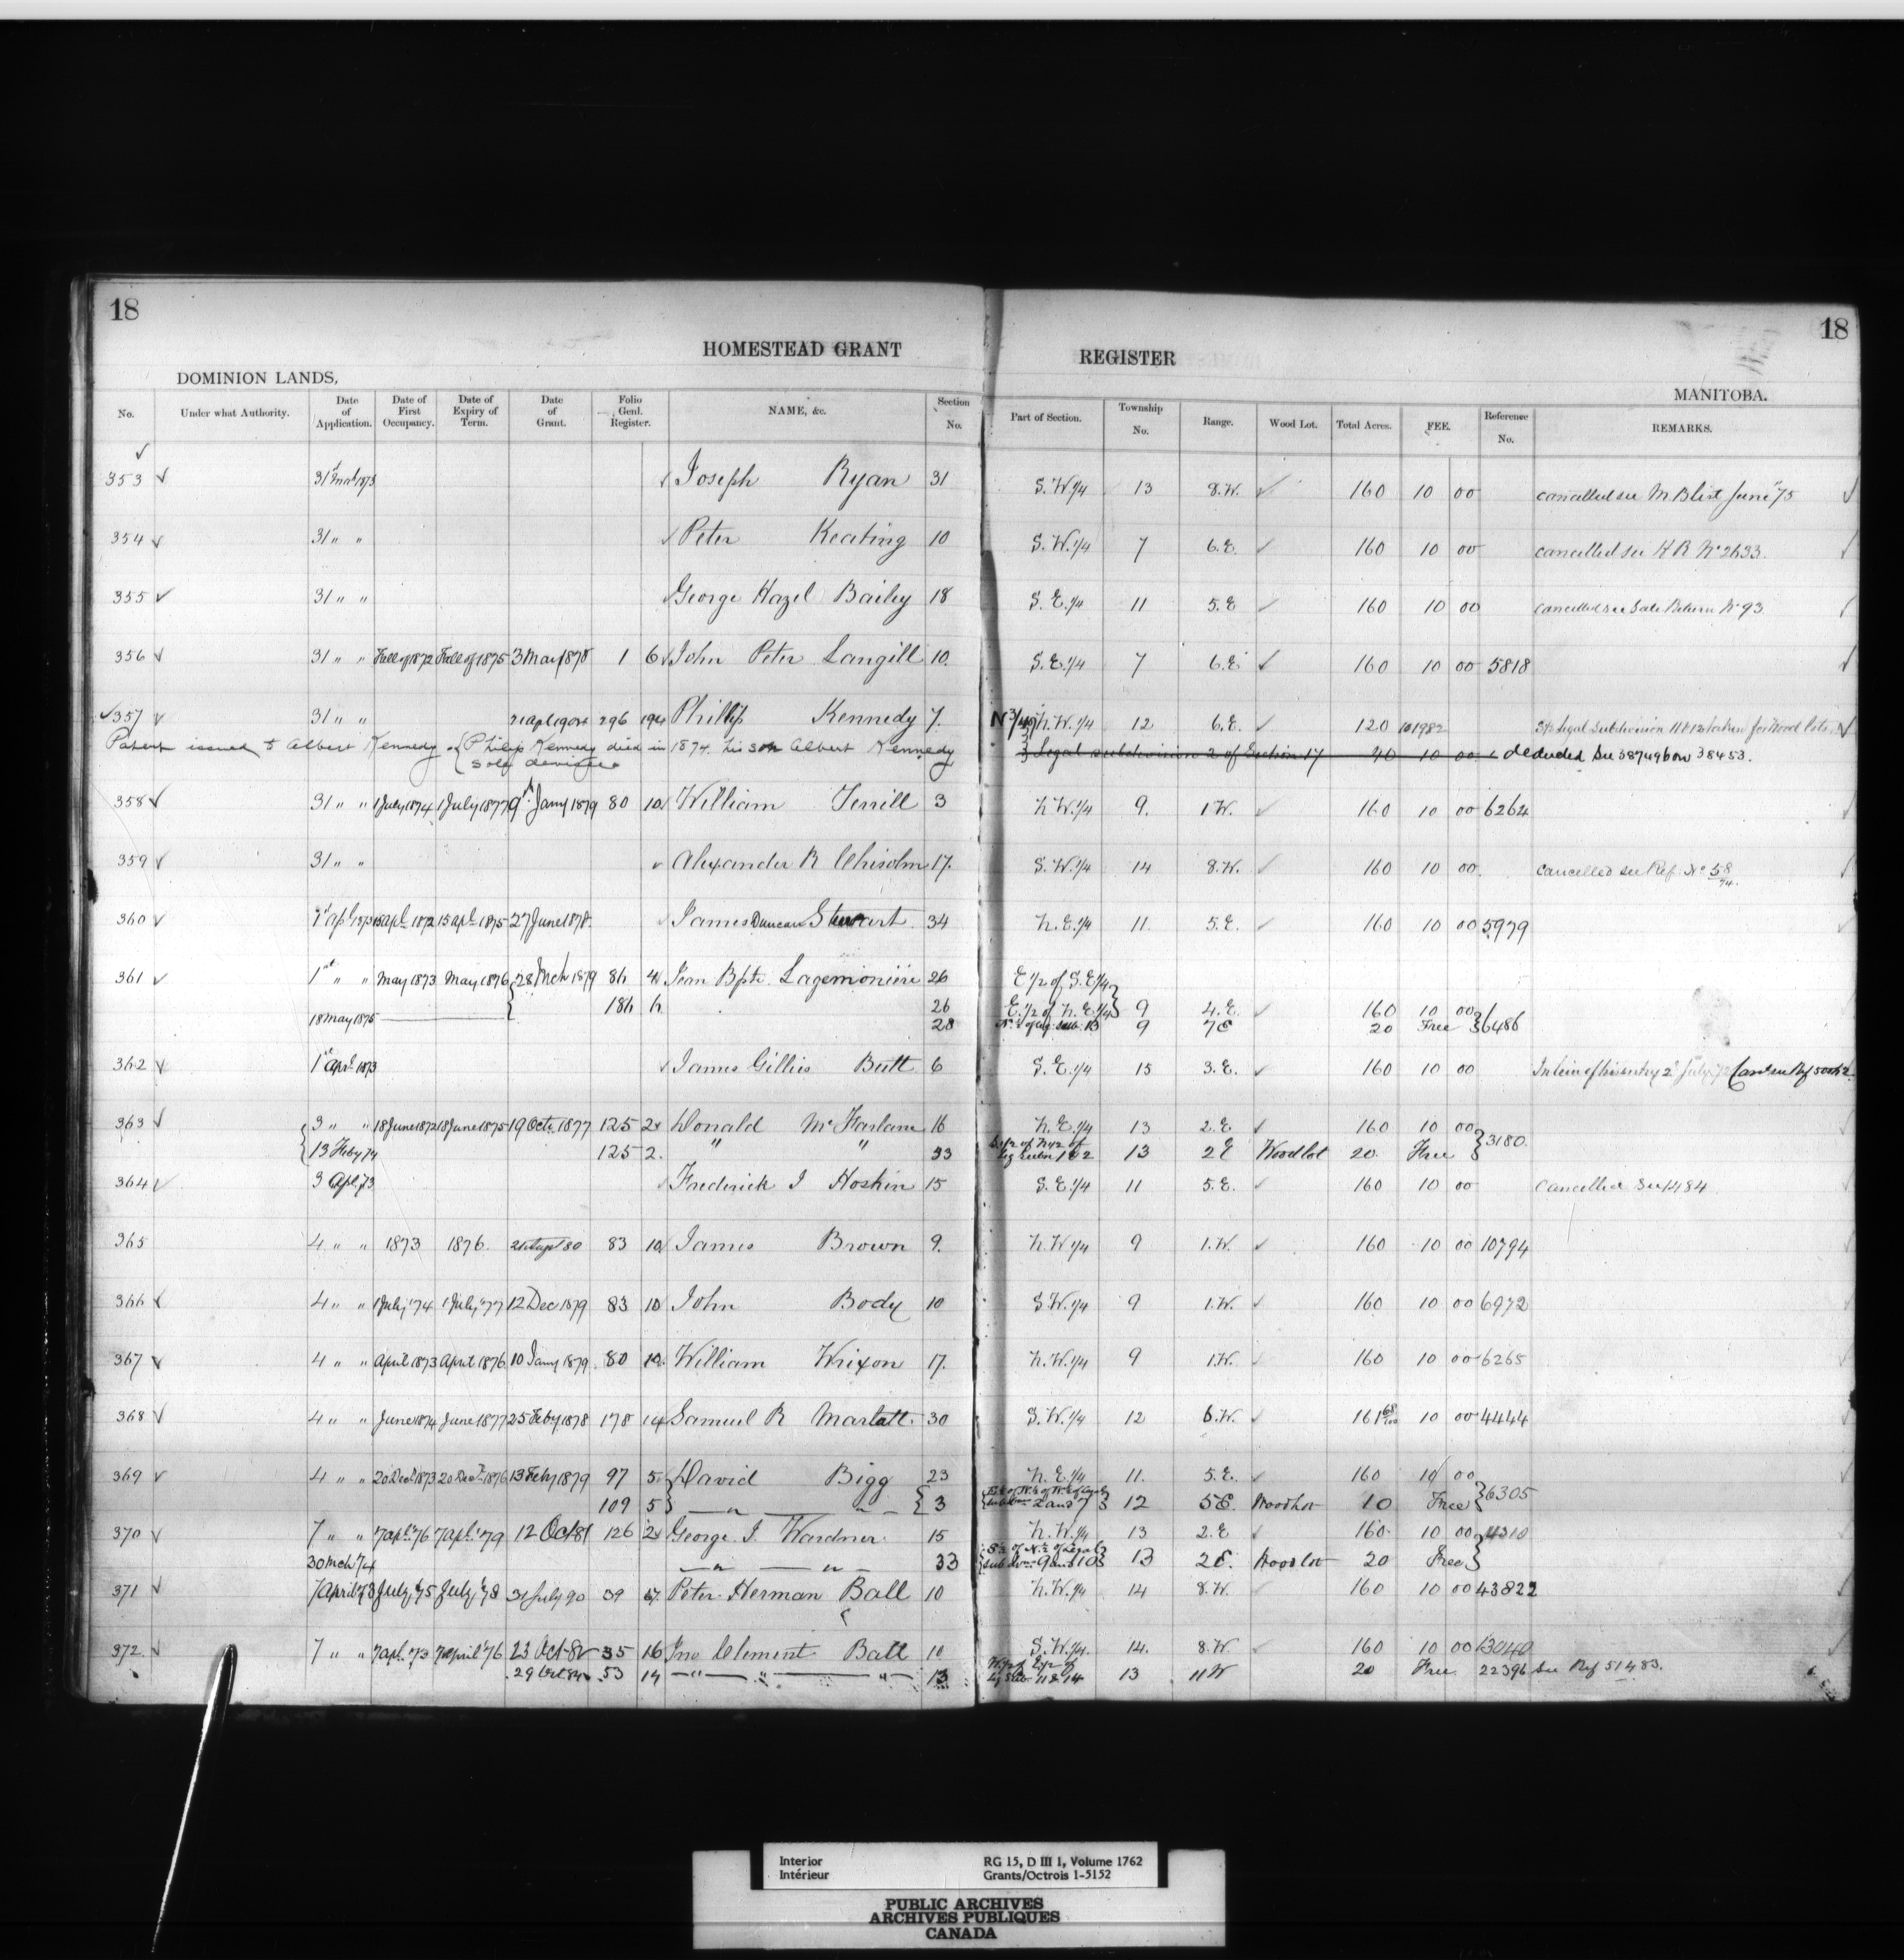 18 18
HOMESTEAD GRANT REGISTER
DOMINION LANDS, MANITOBA.
No. Under what Authority. Date of Application. Date of First Occupancy. Date of Expiry of Term. Date of Grant. Folio Genl. Register. NAME, &c. Section No. Part of Section. Township No. Range. Wood Lot. Total Acres. FEE. Reference No. REMARKS.
353 31st Mch 1873 Joseph Ryan 31 S.W.1/4 13 8.W. 160 10 00 cancelled see M B list June '75
354 31 " " Peter Keating 10 S.W.1/4 7 6.E. 160 10 00 cancelled see H R No 2633
355 31 " " George Hazel Bailey 18 S.E.1/4 11 5.E 160 10 00 cancelled see Sale Return No 93
356 31 " " Fall of 1872 Fall of 1875 3 May 1878 1 6 John Peter Langill 10. S.E.1/4 7 6.E. 160 10 00 5818
357 31 " " 296 194 Phillip Kennedy 7. N.W.1/4 12 6.E. 120 legal subdivision 11 & 12 taken for Wood Lots
Patent issued to Albert Kennedy {Philip Kennedy died in 1874. his son Albert Kennedy
sole devisee. 3 Legal subdivision 2 of Section 17 40 10 00 deducted See 387496 on 38453.
358 31 " " 1 July 1874 1 July 1877 9th Jany 1879 80 10 William Terrill 3 N W.1/4 9. 1 W. 160 10 00 6264
359 31 " " Alexander R Chisolm 17. S.W.1/4 14 8.W. 160 10 00 cancelled see Ref. No 58/74.
360 1st Apl 1873 15 apl 1872 15 apl 1875 27 June 1878. James Duncan Stewart 34 N.E.1/4 11. 5.E. 160 10 00 5979
361 1st " " May 1873 May 1876 28 Mch 1879 86 4 Jean Bpte Lagemonière 26 E 1/2 of S.E 1/4
186 6 26 E. 1/2 of N. E. 1/4 9 4.E. 160 10 00
18 May 1875 28 9 7E 20 Free 6486
362 1st Apr 1873 James Gillies Butt 6 S.E.1/4 15 3.E. 160 10 00 In lieu of his entry 2 July 72
363 3 " " 18 June 1872 18 June 1875 19 Octr. 1877 125 2 Donald McFarlane 16 N.E.1/4 13 2.E 160 10 00
13 Feby 74 125 2. " " 33 13 2E Woodlot 20. Free 3180
364 3 Apl. 73 Frederick J Hoskin 15 S.E.1/4 11 5.E. 160 10 00 Cancelled See 1484
365 4 " " 1873 1876. 83 10 James Brown 9. N.W 1/4 9 1.W. 160 10 00 10794
366 4 " " 1 July '74 1 July '77 12 Dec 1879 83 10 John Body 10 S.W.1/4 9 1.W. 160 10 00 6972
367 4 " " April 1873 April 1876 10 Jany 1879. 80 10. William Wrixon 17. N.W.1/4 9 1.W. 160 10 00 6265
368 4 " " June 1874 June 1877 25 Feby 1878 178 14 Samuel R Marlatt. 30 S.W.1/4 12 6.W. 161 68/100 10 00 4444
369 4 " " 20 Decr 1873 20 Decr 1876 13 Feby 1879 97 5 David Bigg 23 N.E.1/4 11. 5.E. 160 10 00
109 5 " " 3 2 and 7 12 5E. Woodlot 10 Free 6305
370 7 " " 7 apl. '76 7 apl. '79 12 Oct 81 126 2 George J. Wardner. 15 N.W.1/4 13 2.E 160. 10 00
30 Mch '74 " " 33 S 1/2 of N 1/2 of Legal sub divns 9 and 10 13 2E. Woodlot 20 Free
371 7 April '73 July '75 July '78 31 July 90 39 Peter Herman Ball 10 N.W.1/4 14 8.W. 160 10 00 43822
372. 7 " " 7 apl. '73 7 april '76 23 Oct 82 35 16 Jno Clement Ball 10 S.W.1/4. 14. 8.W 160 10 00 13040
29 Oct 84 53 14 " " " 13 W1/2 of E1/2 of Lg Sub 11 & 14 13 11 W 20 Free 22396 See Ref 51483.
Interior RG 15, D III 1, Volume 1762
Intérieur Grants/Octrois 1-5152
PUBLIC ARCHIVES
ARCHIVES PUBLIQUES
CANADA